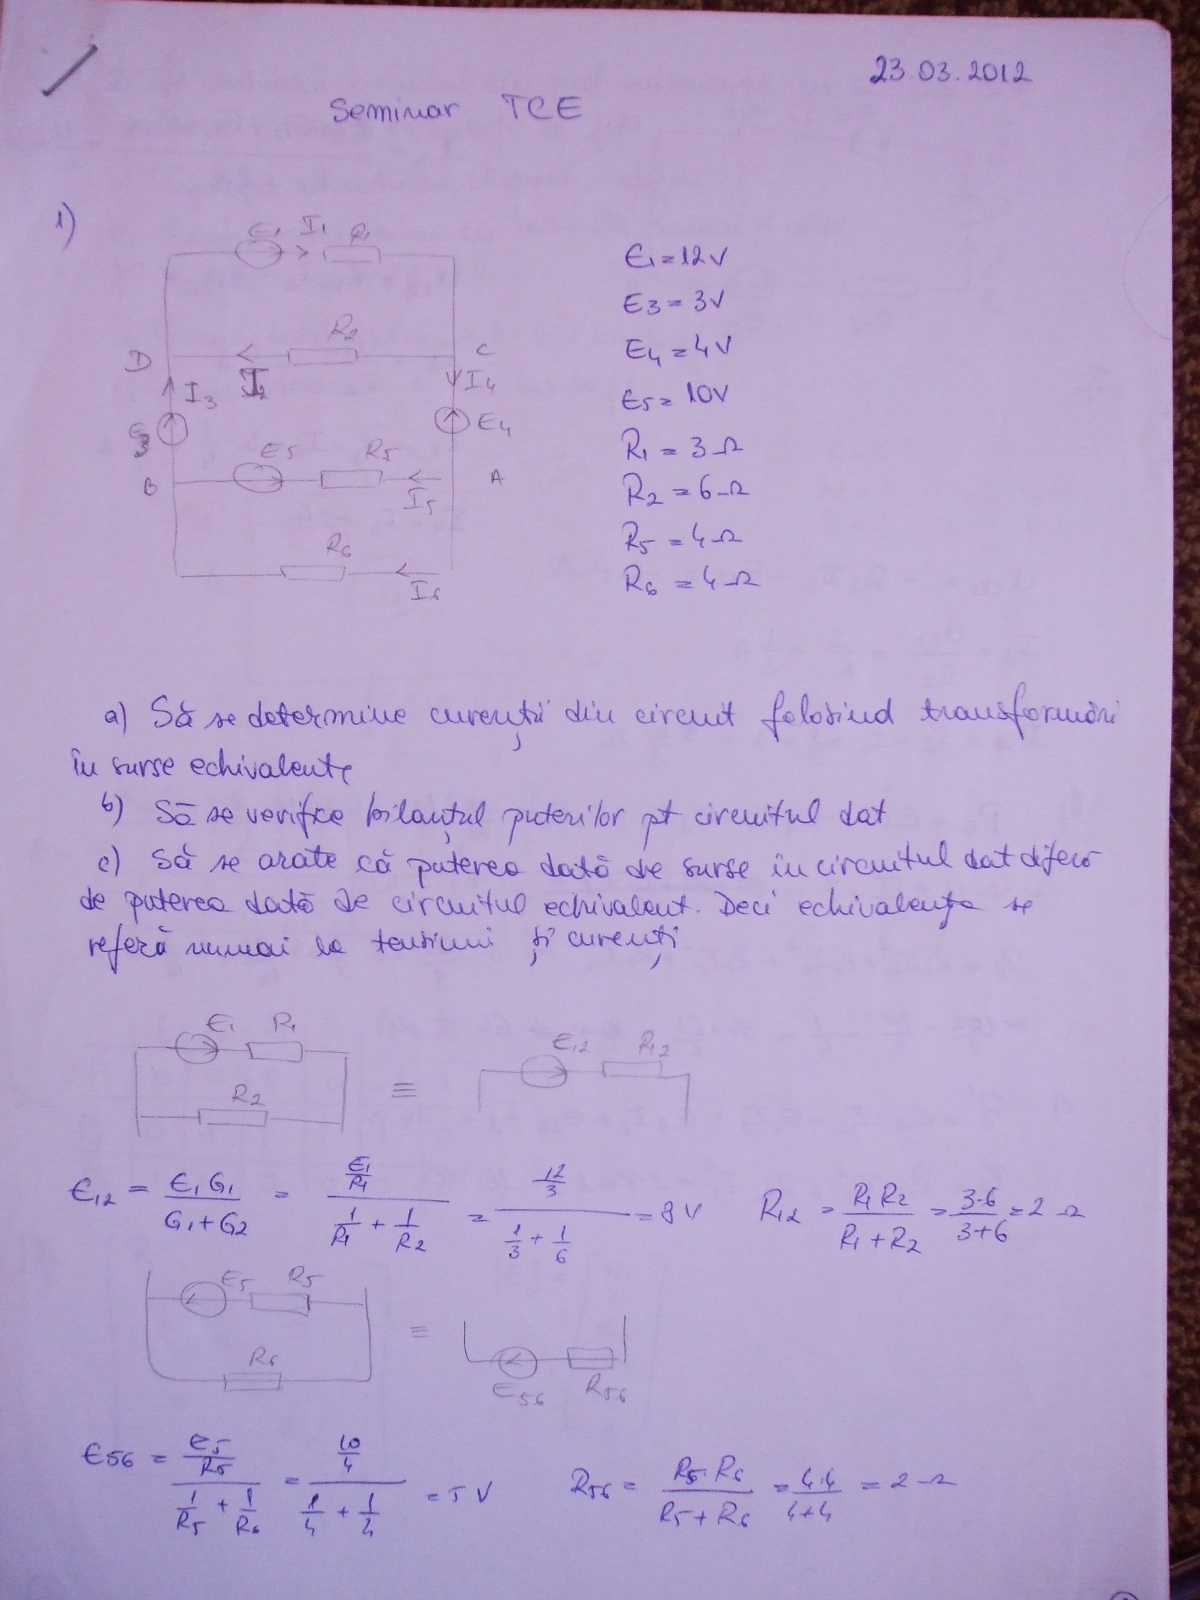 23.03.2012
Seminar TCE
1)
E1 I1 R1
R2
D C
I3 I2 I4
E3 E4
E5 R5
B A
I5
R6
I6
E1 = 12V
E3 = 3V
E4 = 4V
E5 = 10V
R1 = 3Ω
R2 = 6Ω
R5 = 4Ω
R6 = 4Ω
a) Să se determine curenții din circuit folosind transformări
în surse echivalente
b) Să se verifice bilanțul puterilor pt circuitul dat
c) Să se arate că puterea dată de surse în circuitul dat diferă
de puterea dată de circuitul echivalent. Deci echivalența se
referă numai la tensiuni și curenți
E1 R1 R2 ≡ E12 R12
E12 = E1G1/(G1+G2) = (E1/R1)/(1/R1 + 1/R2) = (12/3)/(1/3 + 1/6) = 8V R12 = R1R2/(R1+R2) = 3·6/(3+6) = 2Ω
E5 R5 R6 = E56 R56
E56 = (E5/R5)/(1/R5 + 1/R6) = (10/4)/(1/4 + 1/4) = 5V R56 = R5·R6/(R5+R6) = 4·4/(4+4) = 2Ω